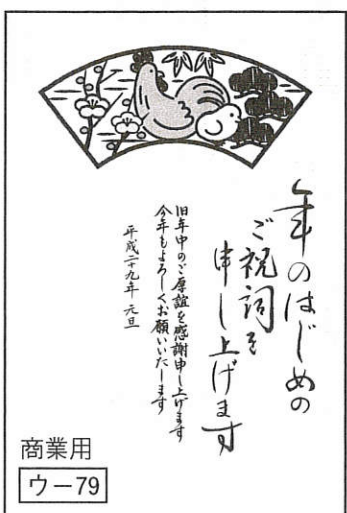 年のはじめの
ご祝詞を
申し上げます
旧年中のご厚誼を感謝申し上げます
今年もよろしくお願いいたします
平成二十九年 元旦
商業用
ウ−79